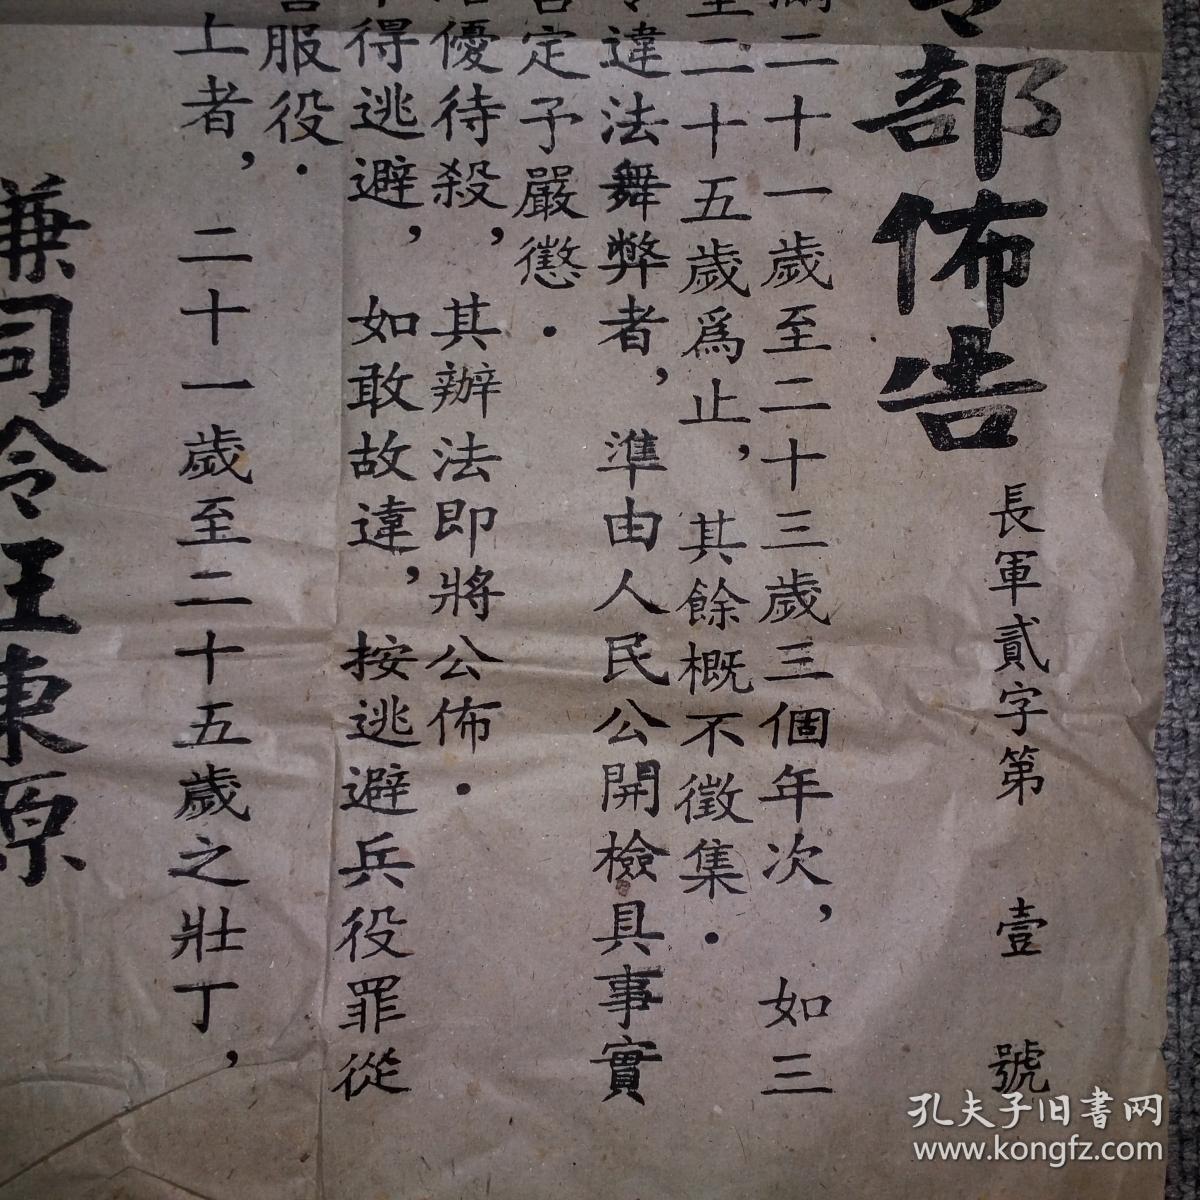 部佈告
長軍貳字第 壹 號
二十一歲至二十三歲三個年次，如三
至二十五歲爲止，其餘概不徵集．
違法舞弊者，準由人民公開檢具事實
定予嚴懲．
優待殺，其辦法即將公佈．
得逃避，如敢故違，按逃避兵役罪從
服役．
上者，二十一歲至二十五歲之壯丁，
兼司令王東原
孔夫子旧书网
www.kongfz.com